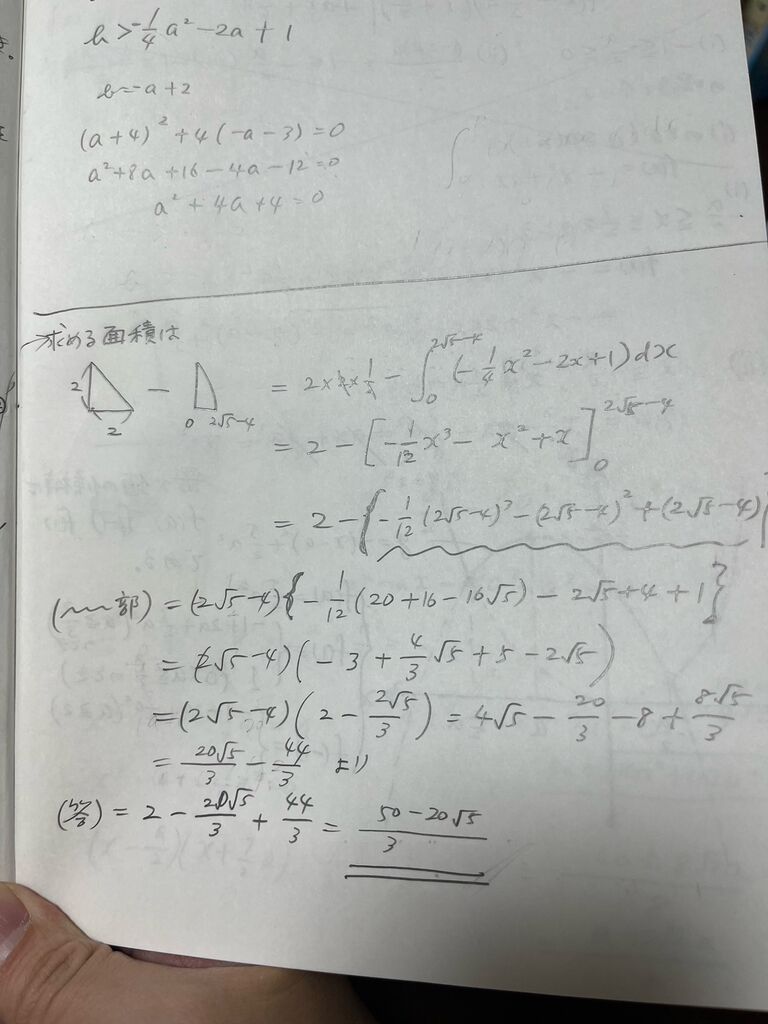 b > -1/4 a² - 2a + 1
b = -a + 2
(a+4)² + 4(-a-3) = 0
a² + 8a + 16 - 4a - 12 = 0
a² + 4a + 4 = 0
求める面積は
2 2 - 0 2√5-4 = 2×2×1/2 - ∫₀^{2√5-4} (-1/4 x² - 2x + 1) dx
= 2 - [-1/12 x³ - x² + x]₀^{2√5-4}
= 2 - {-1/12 (2√5-4)³ - (2√5-4)² + (2√5-4)
(〜〜部) = (2√5-4){-1/12 (20+16-16√5) - 2√5+4+1}
= (2√5-4)(-3 + 4/3 √5 + 5 - 2√5)
= (2√5-4)(2 - 2√5/3) = 4√5 - 20/3 - 8 + 8√5/3
= 20√5/3 - 44/3 より
(答) = 2 - 20√5/3 + 44/3 = 50-20√5/3